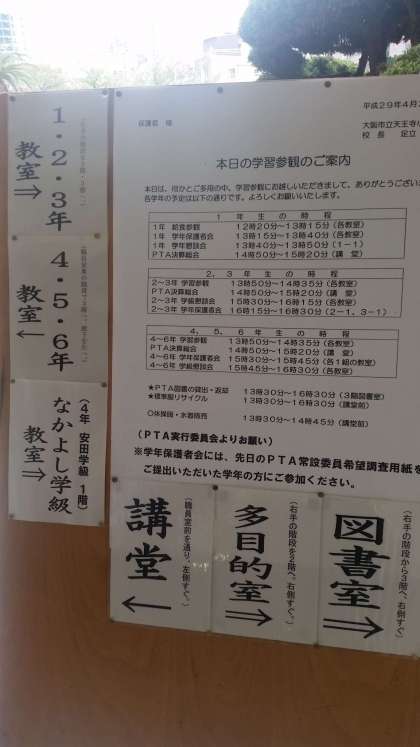 1・2・3年
教室⇒
4・5・6年
教室←
(4年 安田学級 1階)
なかよし学級
教室⇒
平成29年4月
保護者 様
大阪市立天王寺
校 長 足立
本日の学習参観のご案内
本日は、何かとご多用の中、学習参観にお越しいただきまして、ありがとうござい
各学年の予定は以下の通りです。よろしくお願いいたします。
1 年 生 の 時 程
1年 給食参観 12時20分~13時15分(各教室)
1年 学年保護者会 13時15分~13時40分(各教室)
1年 学年懇談会 13時40分~13時50分(1-1)
PTA決算総会 14時50分~15時20分(講 堂)
2, 3 年 生 の 時 程
2~3年 学習参観 13時50分~14時35分(各教室)
PTA決算総会 14時50分~15時20分(講 堂)
2~3年 学級懇談会 15時30分~16時15分(各教室)
2~3年 学年保護者会 16時15分~16時30分(2-1,3-1)
4, 5, 6 年 生 の 時 程
4~6年 学習参観 13時50分~14時35分(各教室)
PTA決算総会 14時50分~15時20分(講 堂)
4~6年 学年保護者会 15時30分~15時45分(各1組の教室)
4~6年 学級懇談会 15時45分~16時30分(各教室)
★PTA図書の貸出・返却 13時30分~16時30分(3階図書室)
★標準服リサイクル 13時30分~ (講堂前)
○体操服・水着販売 13時30分~14時45分(講堂前)
(PTA実行委員会よりお願い)
※学年保護者会には、先日のPTA常設委員希望調査用紙を
ご提出いただいた学年の方にご参加ください。
(右手の階段から3階へ。右側すぐ。)
図書室⇒
(右手の階段を2階へ。右側すぐ。)
多目的室⇒
(職員室前を通り、左側すぐ。)
講堂←